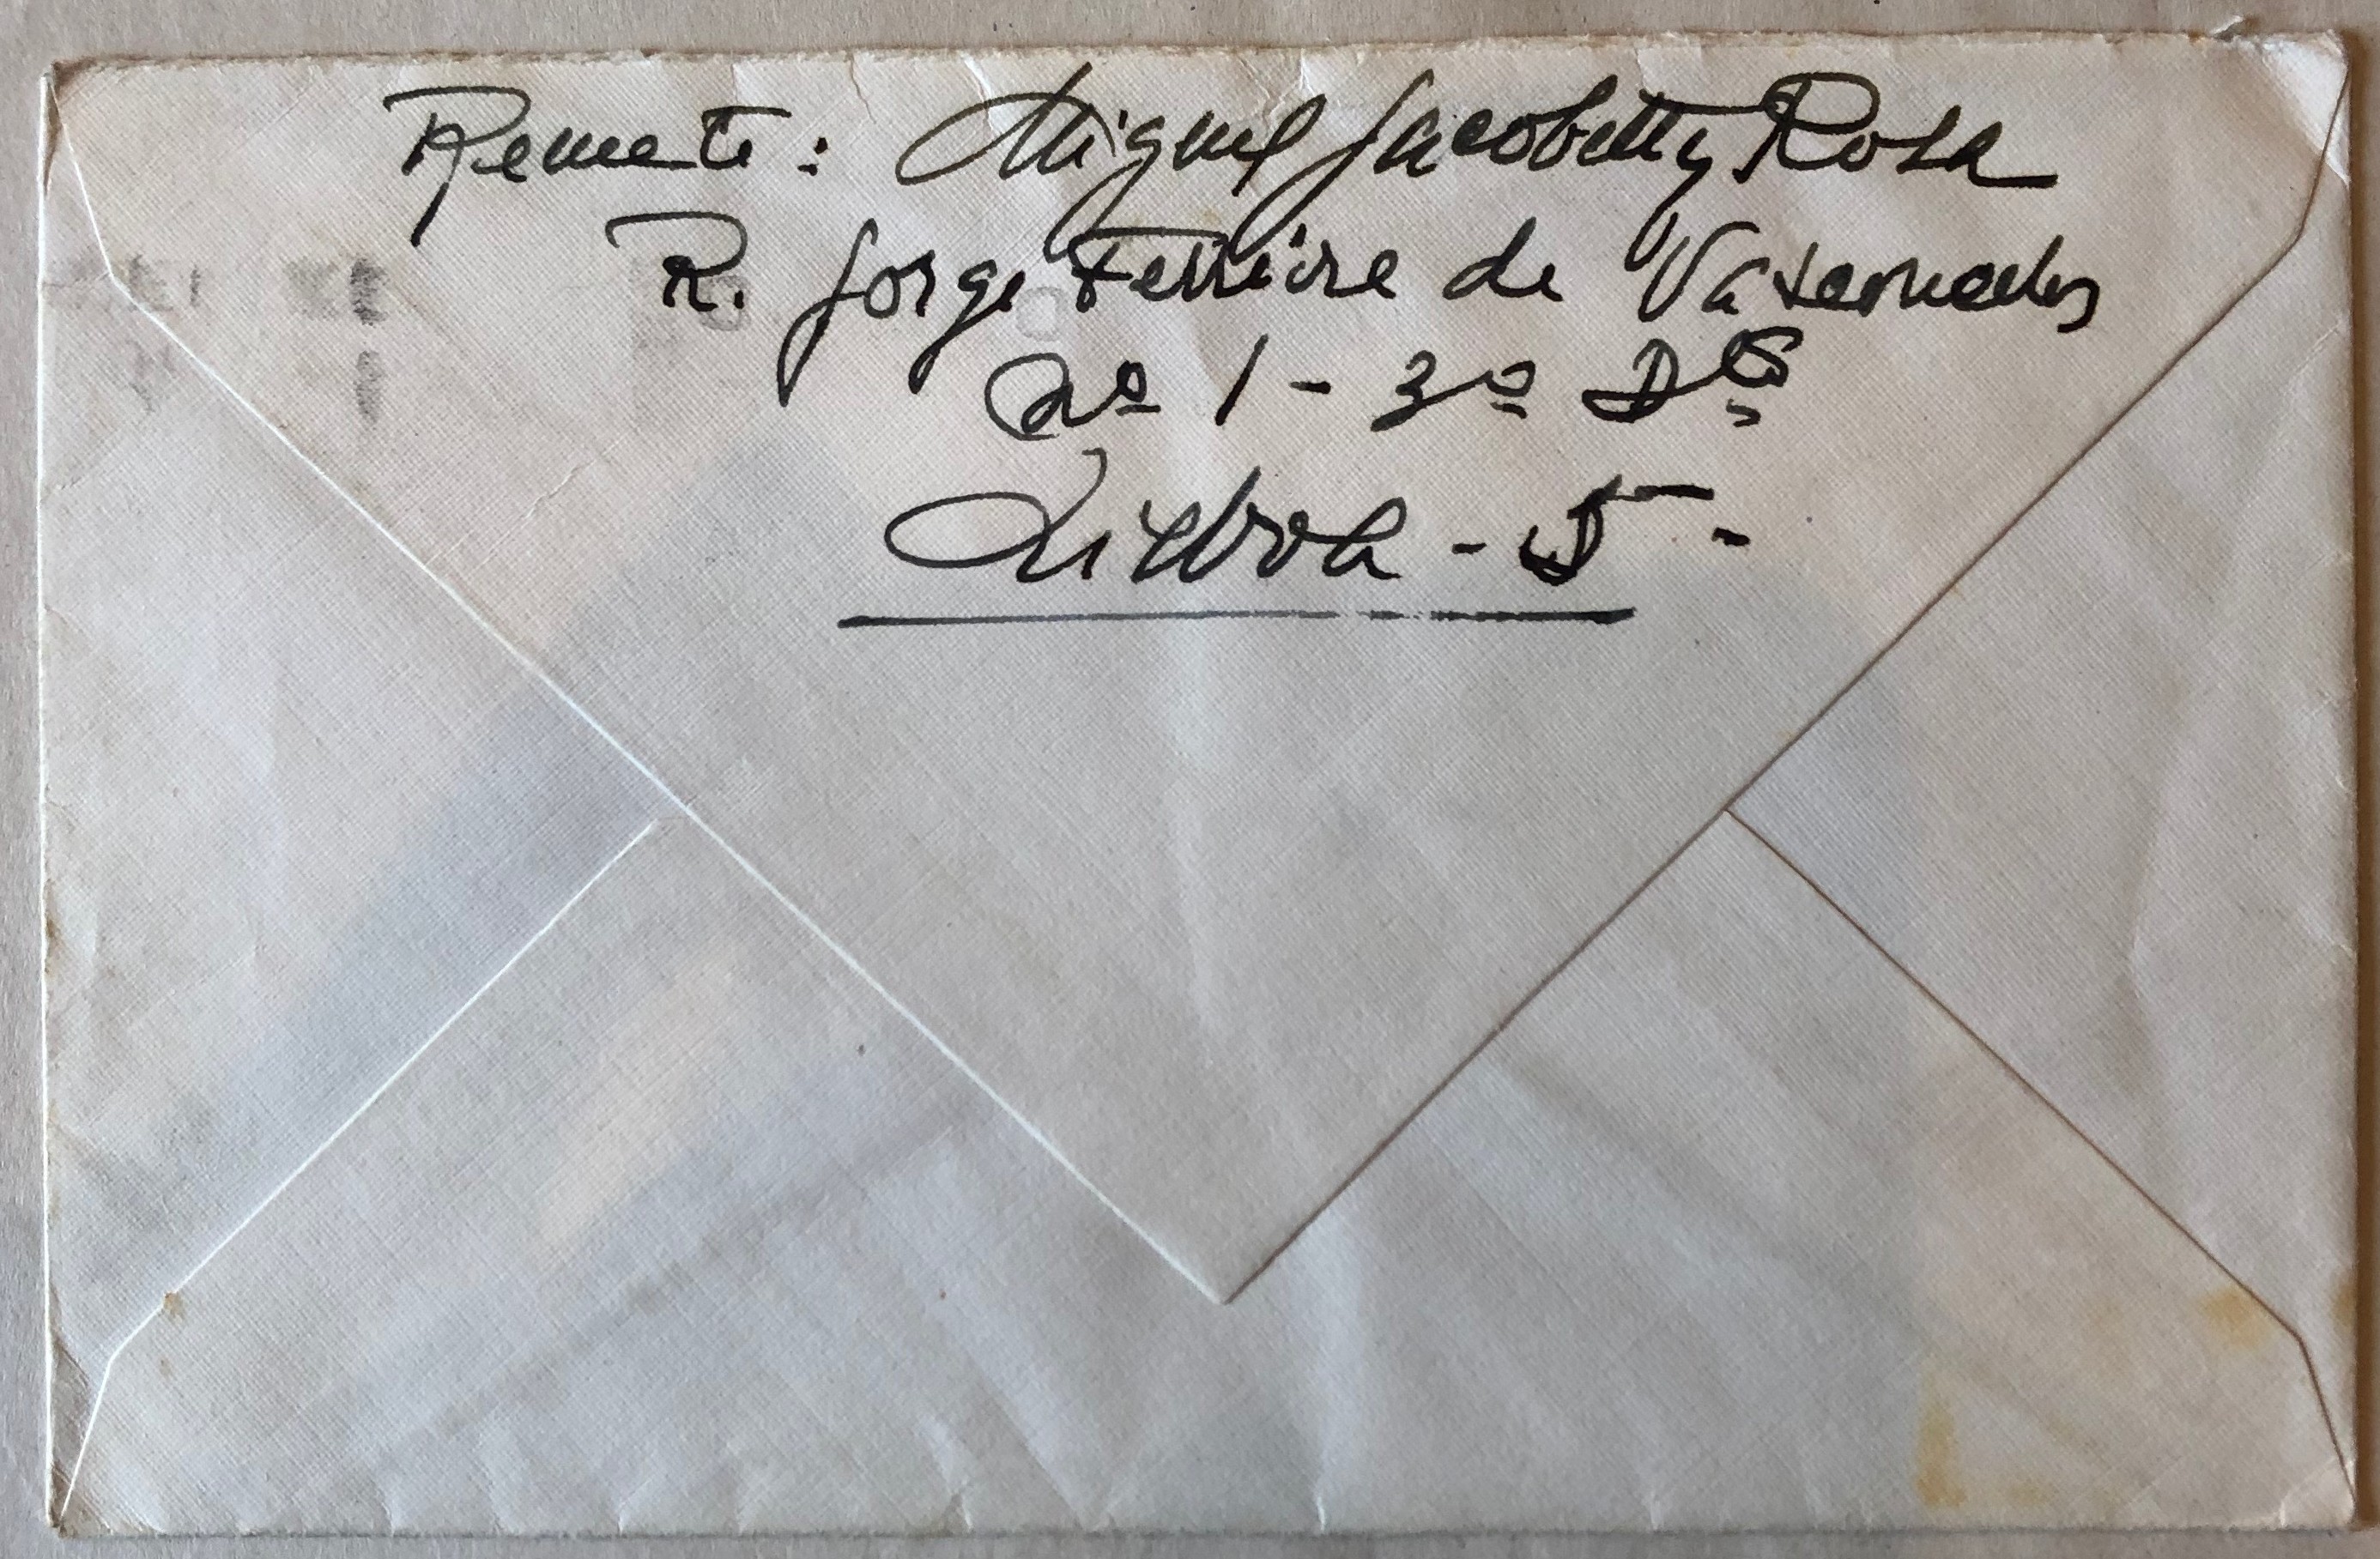 Remete: Miguel Jacobetty Rosa
R. Jorge Ferreira de Vasconcelos
nº 1 - 3º Dto
Lisboa - 5 -